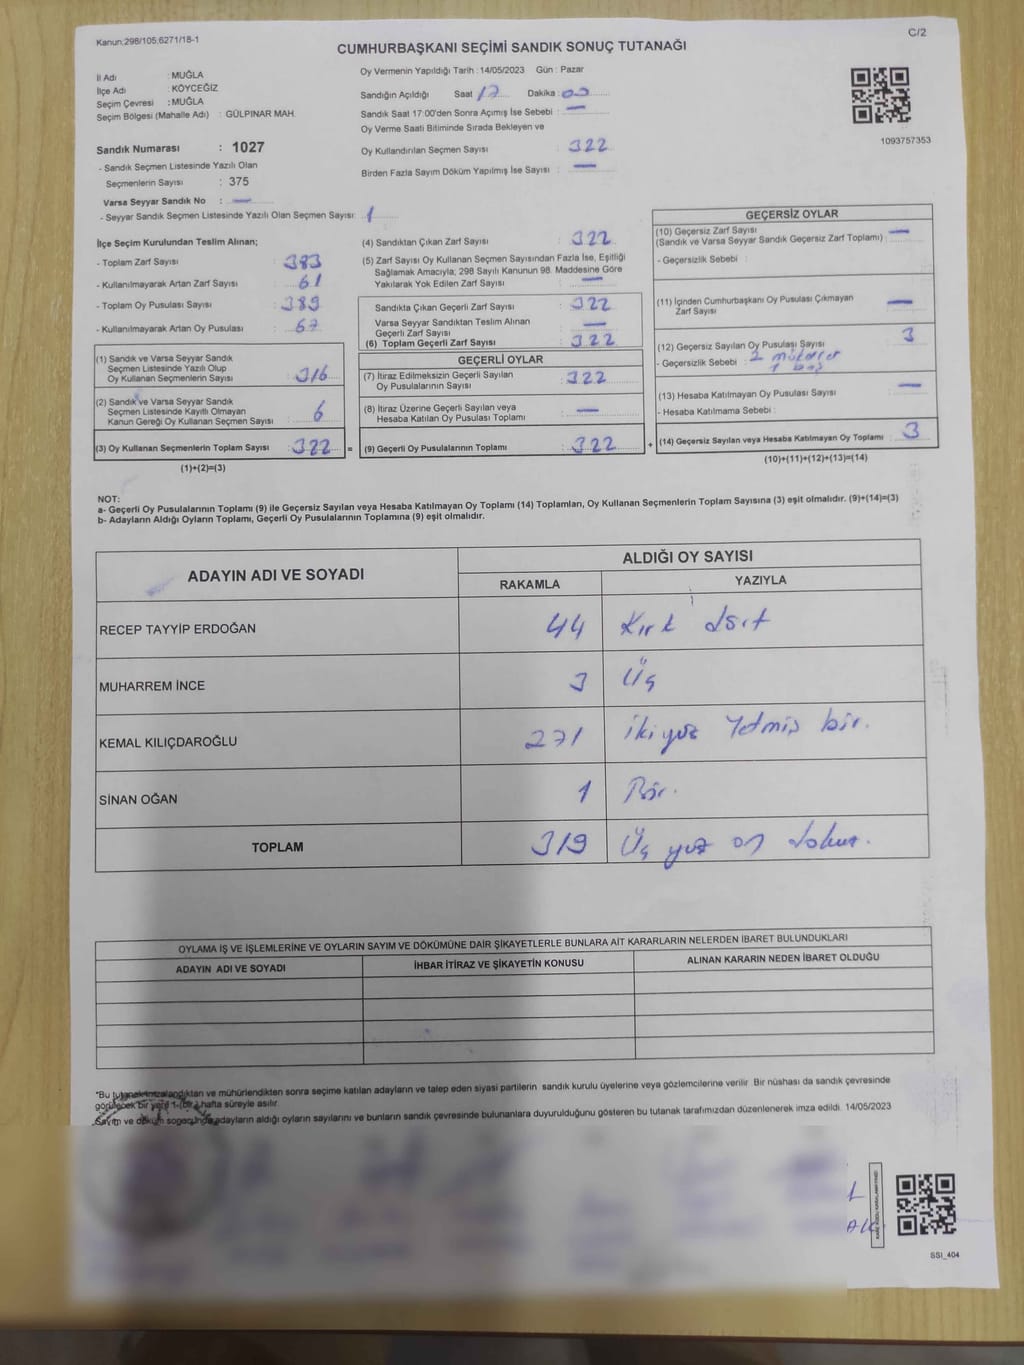 Kanun:298/105;6271/18-1
C/2
CUMHURBAŞKANI SEÇİMİ SANDIK SONUÇ TUTANAĞI
İl Adı : MUĞLA
İlçe Adı : KÖYCEĞİZ
Seçim Çevresi : MUĞLA
Seçim Bölgesi (Mahalle Adı) : GÜLPINAR MAH.
Sandık Numarası : 1027
- Sandık Seçmen Listesinde Yazılı Olan
Seçmenlerin Sayısı : 375
Varsa Seyyar Sandık No : —
- Seyyar Sandık Seçmen Listesinde Yazılı Olan Seçmen Sayısı: 1
Oy Vermenin Yapıldığı Tarih : 14/05/2023 Gün : Pazar
Sandığın Açıldığı Saat 17 Dakika : 00
Sandık Saat 17:00'den Sonra Açılmış İse Sebebi : —
Oy Verme Saati Bitiminde Sırada Bekleyen ve
Oy Kullandırılan Seçmen Sayısı : 322
Birden Fazla Sayım Döküm Yapılmış İse Sayısı : —
1093757353
İlçe Seçim Kurulundan Teslim Alınan;
- Toplam Zarf Sayısı : 383
- Kullanılmayarak Artan Zarf Sayısı : 61
- Toplam Oy Pusulası Sayısı : 389
- Kullanılmayarak Artan Oy Pusulası : 67
(1) Sandık ve Varsa Seyyar Sandık
Seçmen Listesinde Yazılı Olup
Oy Kullanan Seçmenlerin Sayısı : 316
(2) Sandık ve Varsa Seyyar Sandık
Seçmen Listesinde Kayıtlı Olmayan
Kanun Gereği Oy Kullanan Seçmen Sayısı : 6
(3) Oy Kullanan Seçmenlerin Toplam Sayısı : 322 =
(1)+(2)=(3)
(4) Sandıktan Çıkan Zarf Sayısı : 322
(5) Zarf Sayısı Oy Kullanan Seçmen Sayısından Fazla İse, Eşitliği
Sağlamak Amacıyla; 298 Sayılı Kanunun 98. Maddesine Göre
Yakılarak Yok Edilen Zarf Sayısı : —
Sandıkta Çıkan Geçerli Zarf Sayısı : 322
Varsa Seyyar Sandıktan Teslim Alınan
Geçerli Zarf Sayısı : —
(6) Toplam Geçerli Zarf Sayısı : 322
GEÇERLİ OYLAR
(7) İtiraz Edilmeksizin Geçerli Sayılan
Oy Pusulalarının Sayısı : 322
(8) İtiraz Üzerine Geçerli Sayılan veya
Hesaba Katılan Oy Pusulası Toplamı : —
(9) Geçerli Oy Pusulalarının Toplamı : 322 +
GEÇERSİZ OYLAR
(10) Geçersiz Zarf Sayısı
(Sandık ve Varsa Seyyar Sandık Geçersiz Zarf Toplamı) : —
- Geçersizlik Sebebi :
(11) İçinden Cumhurbaşkanı Oy Pusulası Çıkmayan
Zarf Sayısı : —
(12) Geçersiz Sayılan Oy Pusulası Sayısı : 3
- Geçersizlik Sebebi : 2 mükerrer
1 boş
(13) Hesaba Katılmayan Oy Pusulası Sayısı : —
- Hesaba Katılmama Sebebi :
(14) Geçersiz Sayılan veya Hesaba Katılmayan Oy Toplamı : 3
(10)+(11)+(12)+(13)=(14)
NOT:
a- Geçerli Oy Pusulalarının Toplamı (9) ile Geçersiz Sayılan veya Hesaba Katılmayan Oy Toplamı (14) Toplamları, Oy Kullanan Seçmenlerin Toplam Sayısına (3) eşit olmalıdır. (9)+(14)=(3)
b- Adayların Aldığı Oyların Toplamı, Geçerli Oy Pusulalarının Toplamına (9) eşit olmalıdır.
ADAYIN ADI VE SOYADI
ALDIĞI OY SAYISI
RAKAMLA YAZIYLA
RECEP TAYYİP ERDOĞAN 44 Kırk dört
MUHARREM İNCE 3 Üç
KEMAL KILIÇDAROĞLU 271 İkiyüz Yetmiş bir.
SİNAN OĞAN 1 Bir.
TOPLAM 319 Üç yüz on dokuz.
OYLAMA İŞ VE İŞLEMLERİNE VE OYLARIN SAYIM VE DÖKÜMÜNE DAİR ŞİKAYETLERLE BUNLARA AİT KARARLARIN NELERDEN İBARET BULUNDUKLARI
ADAYIN ADI VE SOYADI İHBAR İTİRAZ VE ŞİKAYETİN KONUSU ALINAN KARARIN NEDEN İBARET OLDUĞU
"Bu tutanak imzalandıktan ve mühürlendikten sonra seçime katılan adayların ve talep eden siyasi partilerin sandık kurulu üyelerine veya gözlemcilerine verilir. Bir nüshası da sandık çevresinde
görülecek bir yere 1-(bir) hafta süreyle asılır.
Sayım ve döküm sonucunda adayların aldığı oyların sayılarını ve bunların sandık çevresinde bulunanlara duyurulduğunu gösteren bu tutanak tarafımızdan düzenlenerek imza edildi. 14/05/2023
SSI_404